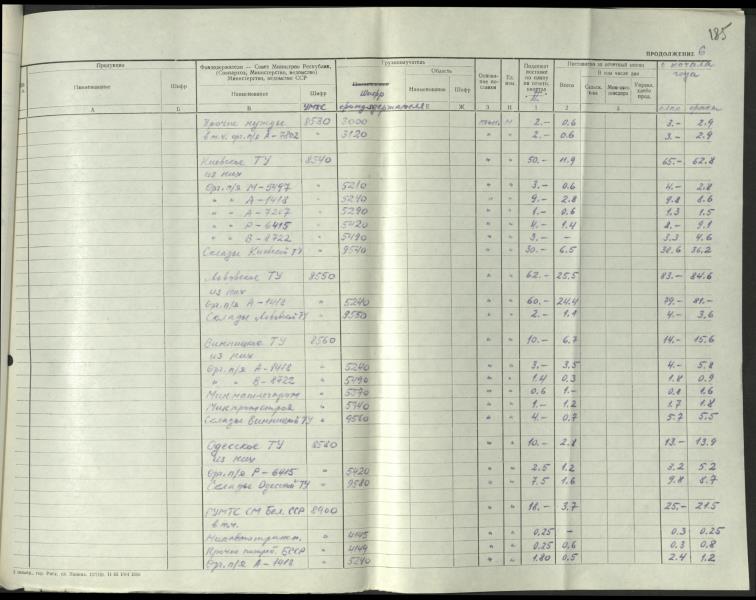 185
ПРОДОЛЖЕНИЕ 6
Продукция
Наименование
Шифр
Фондодержатели — Совет Министров Республики,
(Совнархоз, Министерства, ведомства)
Министерства, ведомства СССР
Наименование
Шифр
УМТС
Грузополучатель
Шифр
фондодержателя
Область
Наименование
Шифр
Ед. изм.
Подлежит поставке по плану на отчетн. квартал
II
Поставлено за отчетный период
Всего
В том числе для
с начала года
план
факт
А Б В Ж З И 1 2 3 4 5
Прочие нужды 8530 3000 тыс. м 2.- 0.6 3.- 2.9
в т.ч. орг. п/я А-7802 " 3120 " " 2.- 0.6 3.- 2.9
Киевское ТУ 8540 " " 50.- 11.9 65.- 62.8
из них
Орг. п/я М-5497 " 5210 " " 3.- 0.6 4.- 2.8
" " А-1418 " 5240 " " 9.- 2.8 9.8 8.6
" " А-7207 " 5290 " " 1.- 0.6 1.3 1.5
" " Р-6415 " 5420 " " 4.- 1.4 8.- 9.1
" " В-8722 " 5490 " " 3.- - 3.3 4.6
Склады Киевск ТУ " 9540 " " 30.- 6.5 38.6 36.2
Львовское ТУ 8550 " " 62.- 25.5 83.- 84.6
из них
Орг. п/я А-1418 " 5240 " " 60.- 24.4 79.- 81.-
Склады Львовск ТУ " 9550 " " 2.- 1.1 4.- 3.6
Винницкое ТУ 8560 " " 10.- 6.7 14.- 15.6
из них
Орг. п/я А-1418 " 5240 " " 3.- 3.5 4.- 5.8
" " В-8722 " 5490 " " 1.4 0.3 1.8 0.9
Минмашлегпром " 5570 " " 0.6 1.- 0.8 1.6
Минпромстрой " 5740 " " 1.- 1.2 1.7 1.8
Склады Винницк ТУ " 9560 " " 4.- 0.7 5.7 5.5
Одесское ТУ 8580 " " 10.- 2.8 13.- 13.9
из них
Орг. п/я Р-6415 " 5420 " " 2.5 1.2 3.2 5.2
Склады Одесск ТУ " 9580 " " 7.5 1.6 9.8 8.7
ГУМТС СМ Бел. ССР 8900 " " 18.- 3.7 25.- 21.5
в т.ч.
" 4145 " " 0.25 - 0.3 0.25
Прочие потреб. БССР " 4149 " " 0.25 0.6 0.3 0.8
Орг. п/я А-1418 " 5240 " " 1.80 0.5 2.4 1.2